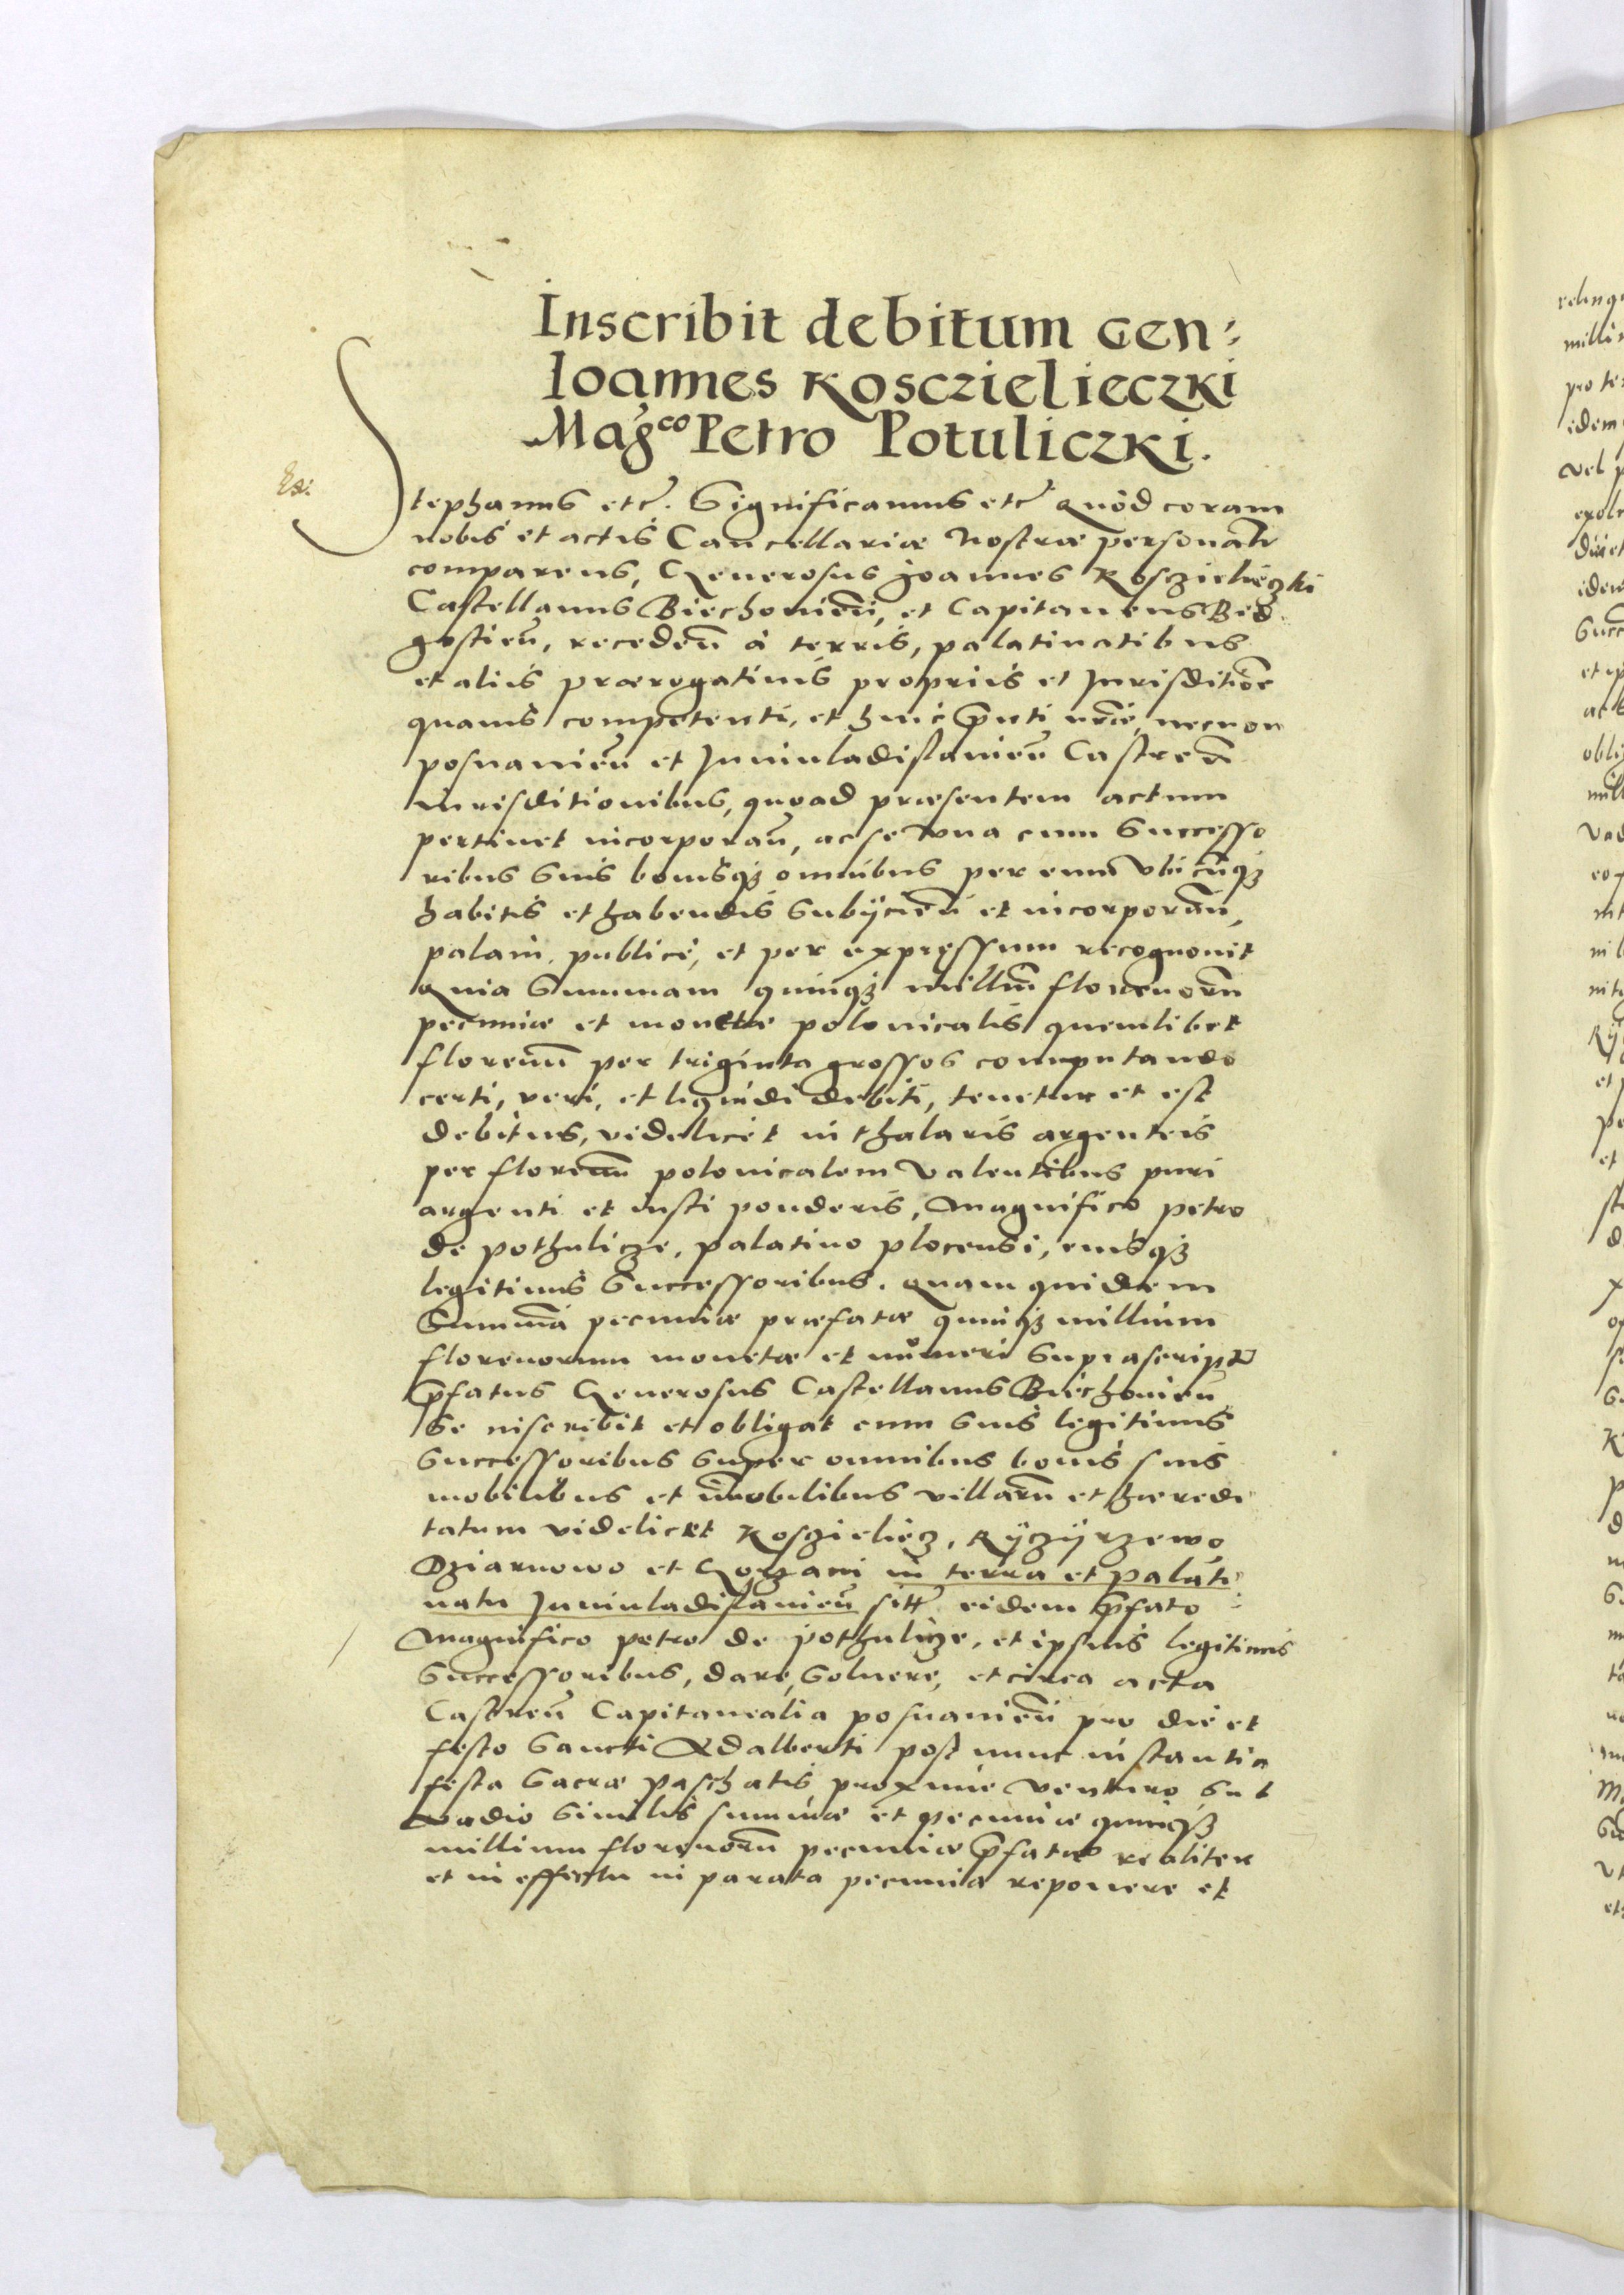 Inscribit debitum Gen:
Ioannes Kosczielieczki
Mag̃co Petro Potuliczki.
Stephanus etc̃. Significamus etc̃ Quod coram
nobis et actis Cancellariæ Nostræ personalr̃
comparens, Generosus Joannes Kosczielieczki
Castellanus Biechouien̄, et Capitaneus Bid
gostien̄, receden̄ à terris, palatinatibus
et aliis prærogatiuis propriis et Jurisditiōe
quauis competenti, et huic p̄nti n̄rae, necnon
posnanien̄ et Juniuladislauien̄ Castren̄
iurisditionibus, quoad præsentem actum
pertinet incorporan̄, ac se vna cum Successo
ribus Suis bonisqȝ omnibus per eum Vbicunqȝ
habitis et habendis Subÿcien̄ et incorporan̄,
palam, publicè, et per expressum recognouit
Quia Summam quinqȝ milliū florenorū
pecuniæ et monetæ polonicalis quemlibet
florenum per triginta grossos computando
certi, veri, et liquidi debiti, tenetur et est
debitus, videlicet in thalaris argenteis
per florenum polonicalem Valentibus puri
argenti et iusti ponderis, Magnifico petro
de pothulicze, palatino plocensi, eiusqȝ
legitimis Successoribus. Quam quidem
Summā pecuniæ præfatæ quinqȝ millium
florenorum monetæ et numeri Suprascripti
p̄fatus Generosus Castellanus Biechouien̄
Se inscribit et obligat cum Suis legitimis
Successoribus Super omnibus bonis suis
mobilibus et im̄obilibus villarū et hæredi
tatum videlicet Koscieliecz, Rÿczÿrzewo
Dziarnowo et in terra et Palati
natu Juniuladislauien̄ sitt̃ eidem p̄fato
Magnifico petro de pothulicze, et ipsius legitimis
Successoribus, dare, Soluere, et circa acta
Castren̄ Capitanealia posnanien̄ pro die et
festo Sancti Adalberti post nunc instantia
festa Sacræ Paschatis proxime Venturo Sub
vadio Similis summæ et pecuniæ quinqȝ
millium florenorū pecuniæ p̄fatæ realiter
et in effectu in parata pecunia reponere et